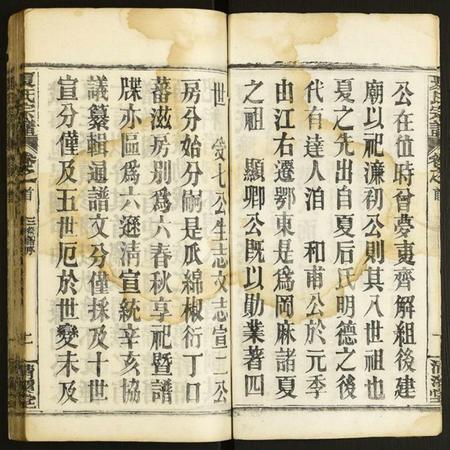 公在位時曾夢夷齊解組後建
廟以祀濂初公則其入世祖也
夏之先出自夏后氏明德之後
代有達人洎 和甫公於元季
由江右遷鄂東是為岡麻諸夏
之祖 顯卿公既以勛業著四
世 受七公生志文志宣二公
房分始分嗣是瓜綿椒衍丁口
蕃滋房別為六春秋享祀暨譜
牒亦區為六遜清宣統辛亥協
議纂輯通譜文分僅採及十世
宣分僅及五世厄於世變未及
夏氏宗譜 卷之首